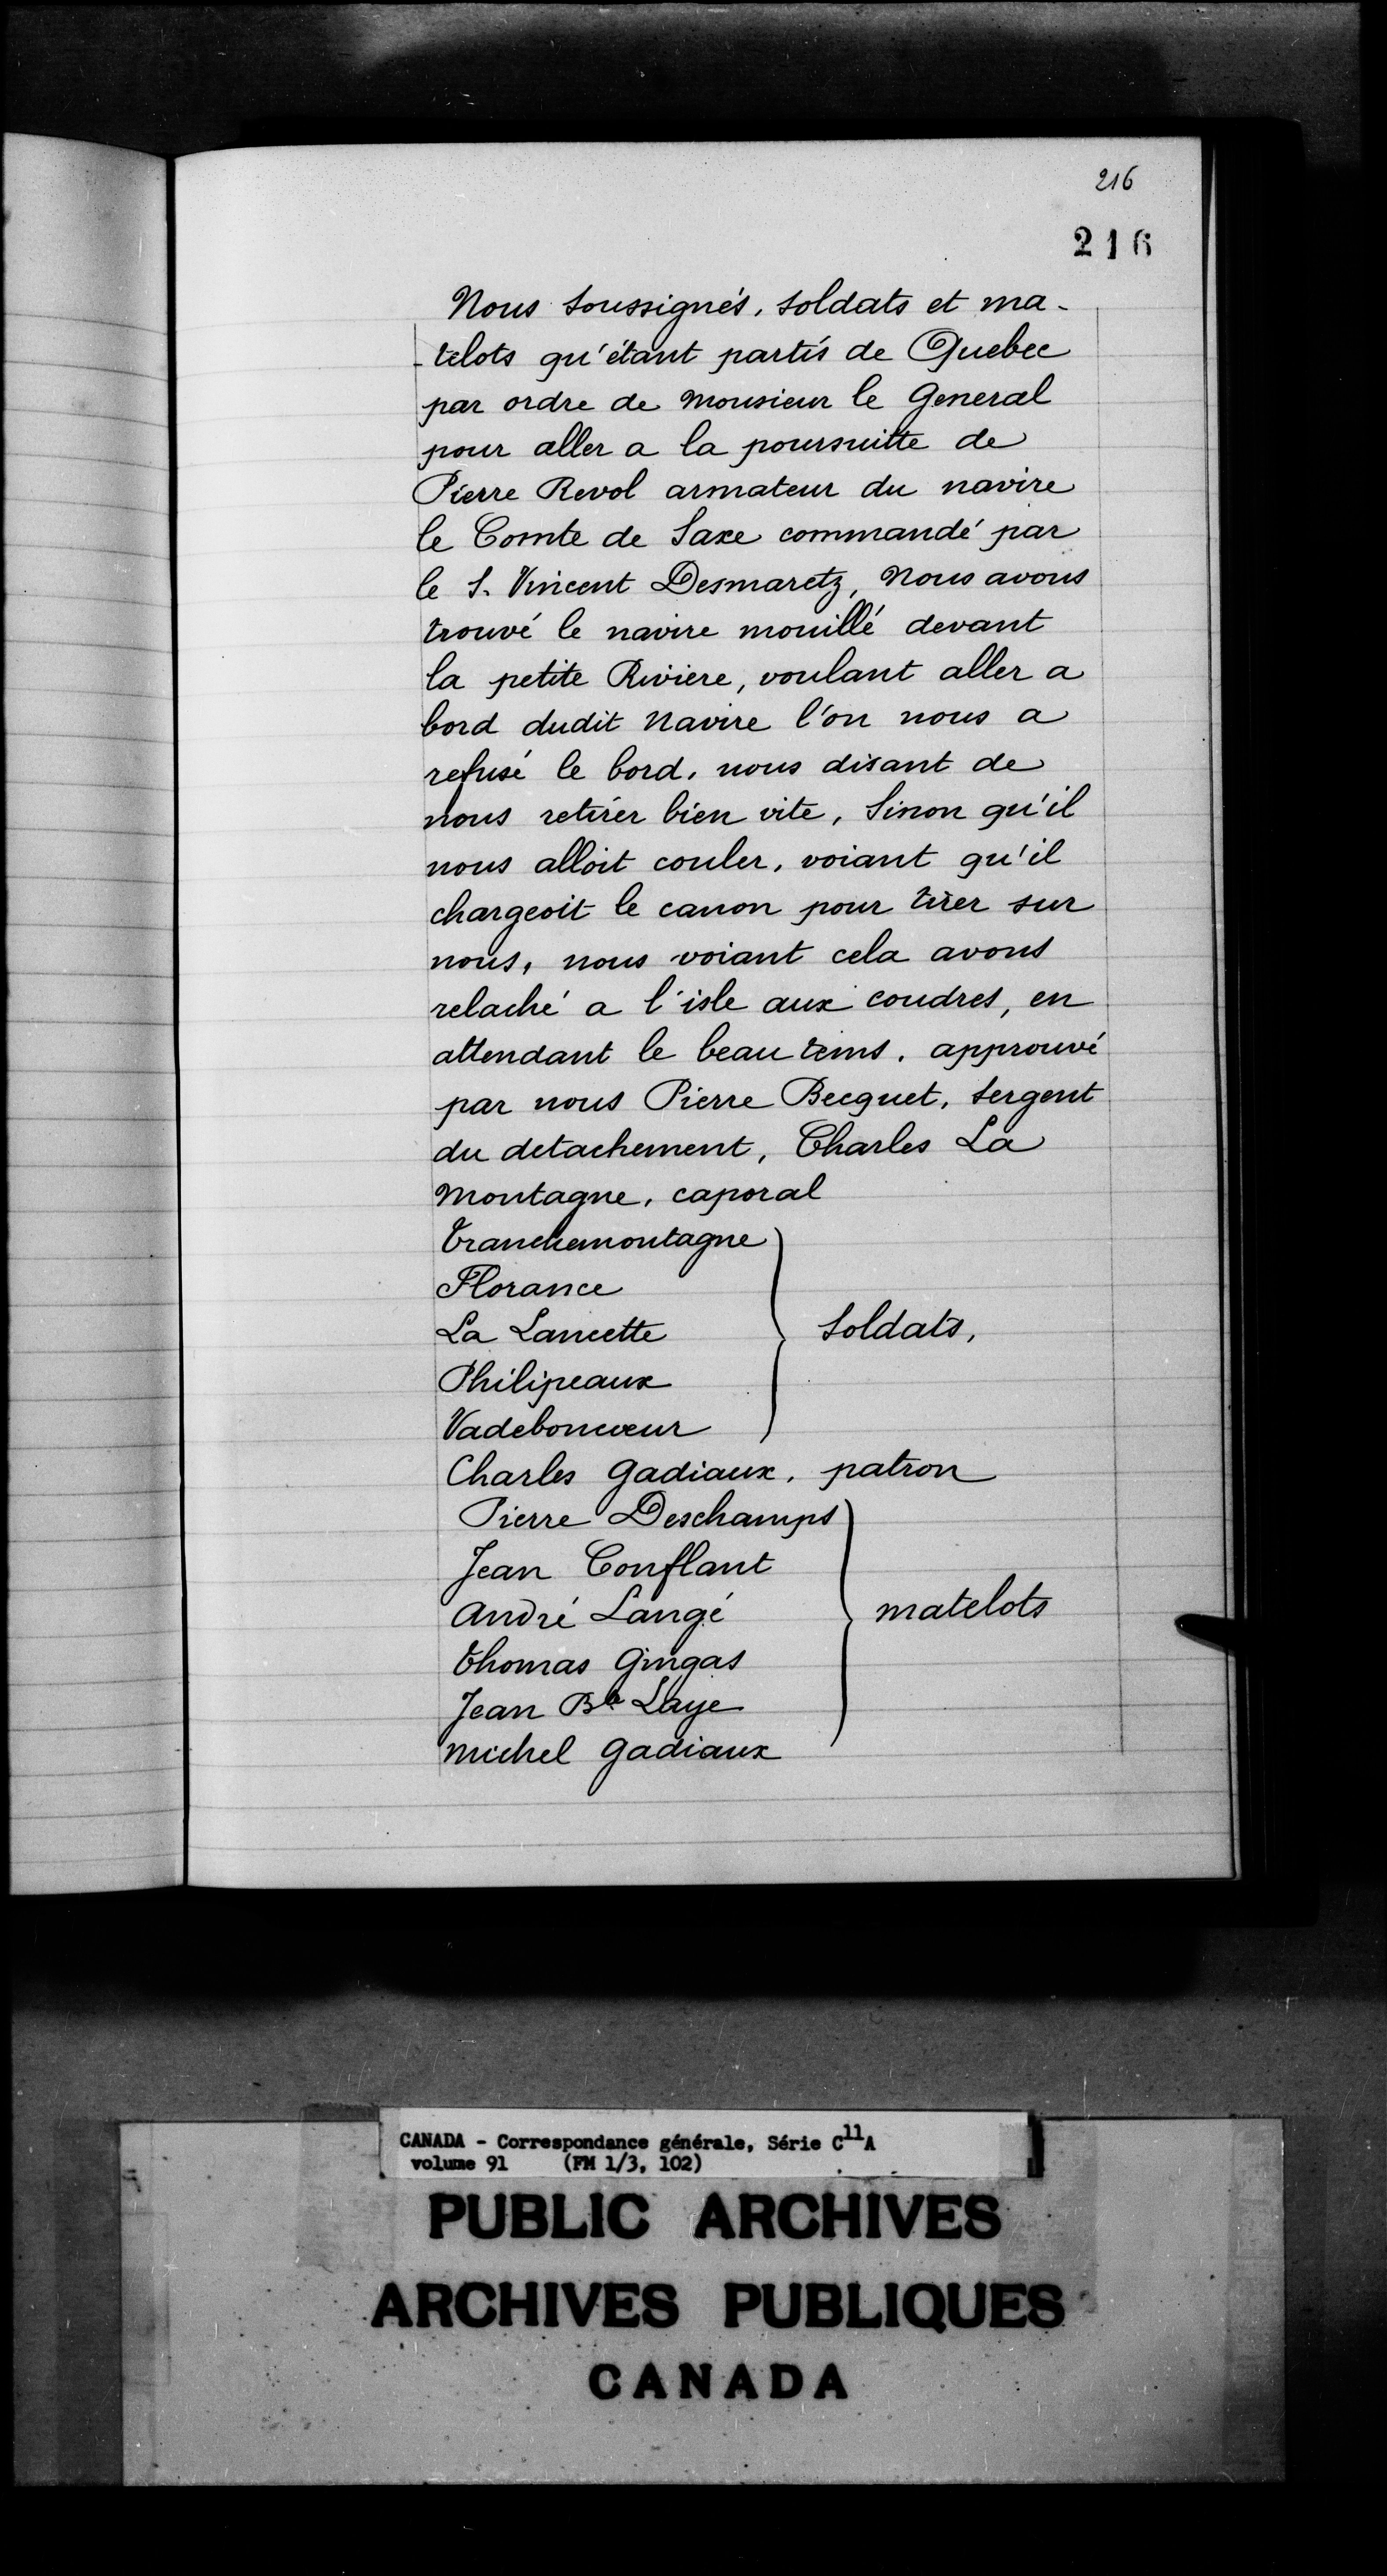 216
216
Nous soussignés, soldats et ma-
-telots qu'étant partis de Quebec
par ordre de Monsieur le General
pour aller a la poursuitte de
Pierre Revol armateur du navire
le Comte de Saxe commandé par
le S. Vincent Desmaretz, Nous avons
trouvé le navire mouillé devant
la petite Riviere, voulant aller a
bord dudit Navire l'on nous a
refusé le bord, nous disant de
nous retirer bien vite, Sinon qu'il
nous alloit couler, voiant qu'il
chargeoit le canon pour tirer sur
nous, nous voiant cela avons
relaché a l'isle aux coudres, en
attendant le beau tems. approuvé
par nous Pierre Becquet, Sergent
du detachement, Charles La
Montagne, caporal
Tranchemontagne
Florance
La Lancette
Soldats,
Philipeaux
Vadeboncœur
Charles Gadiaux, patron
Pierre Deschamps
Jean Conflant
André Langé
matelots
Thomas Gingas
Jean Bte Laye
Michel Gadiaux
CANADA - Correspondance générale, Série C11A
volume 91 (FM 1/3, 102)
PUBLIC ARCHIVES
ARCHIVES PUBLIQUES
CANADA